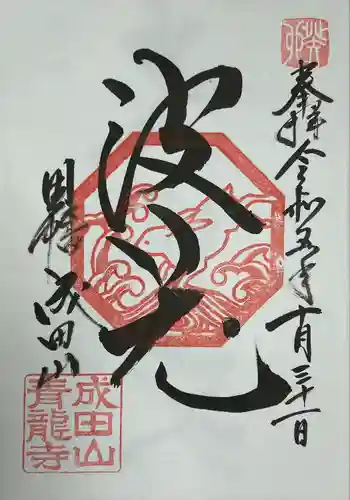 癸卯
奉拝 令和五年十月三十一日
波兎
因幡 成田山
成田山
青龍寺